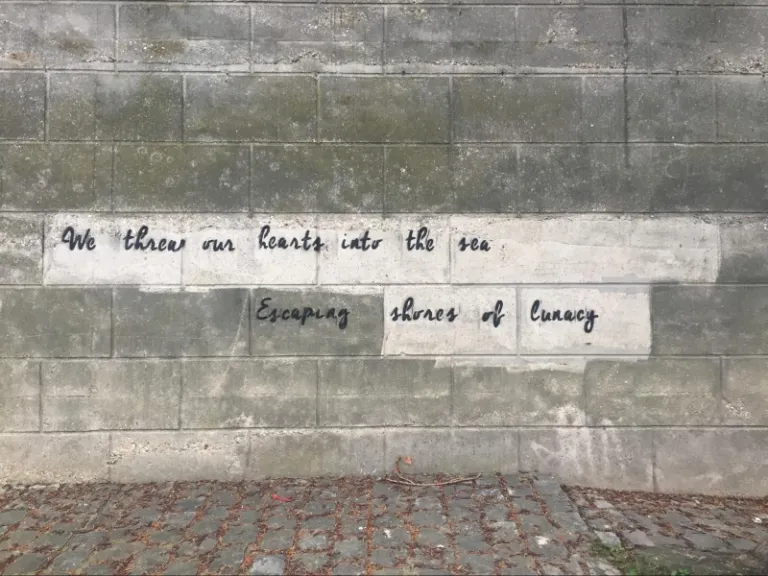 We threw our hearts into the sea
Escaping shores of lunacy